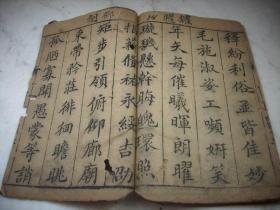 釋紛利俗並皆佳妙
毛施淑姿工嚬妍笑
年矢每催曦暉朗曜
璇璣懸斡晦魄環照
指薪脩祜永綏吉劭
矩步引領俯仰廊廟
束帶矜莊徘徊瞻眺
孤陋寡聞愚蒙等誚